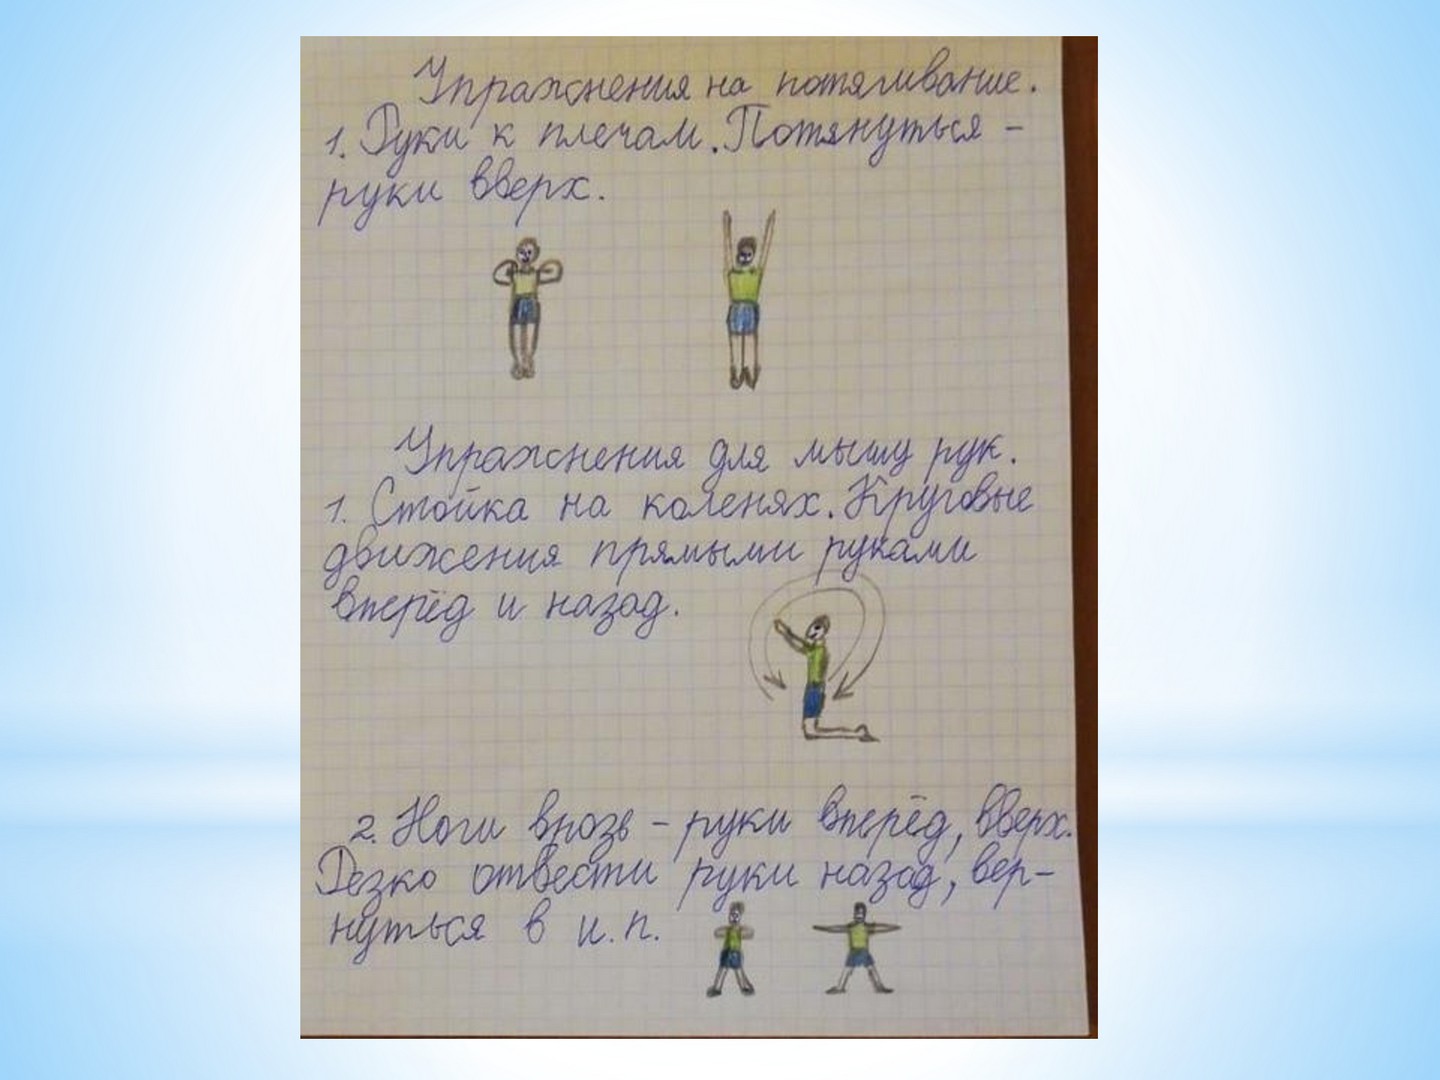 Упражнения на потягивание.
1. Руки к плечам. Потянуться –
руки вверх.
Упражнения для мышц рук.
1. Стойка на коленях. Круговые
движения прямыми руками
вперёд и назад.
2. Ноги врозь – руки вперёд, вверх.
Резко отвести руки назад, вер-
нуться в и.п.